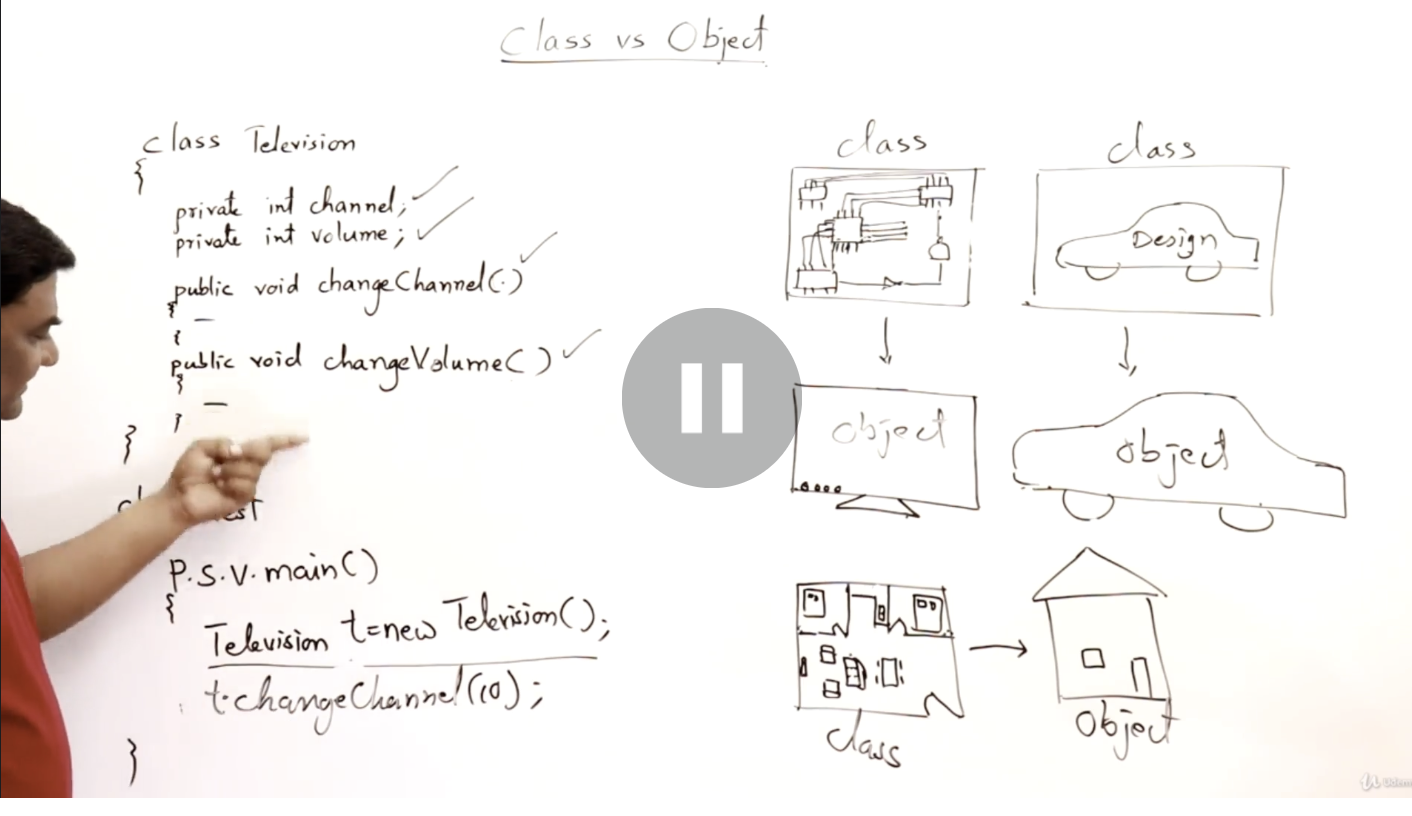 Class vs Object
class Television
{
private int channel;
private int volume;
public void changeChannel(.)
{
{
public void changeVolume()
}
}
}
P.S.V.main()
{
Television t=new Television();
t.changeChannel(10);
}
class
class
Design
object
object
class
object
Udem